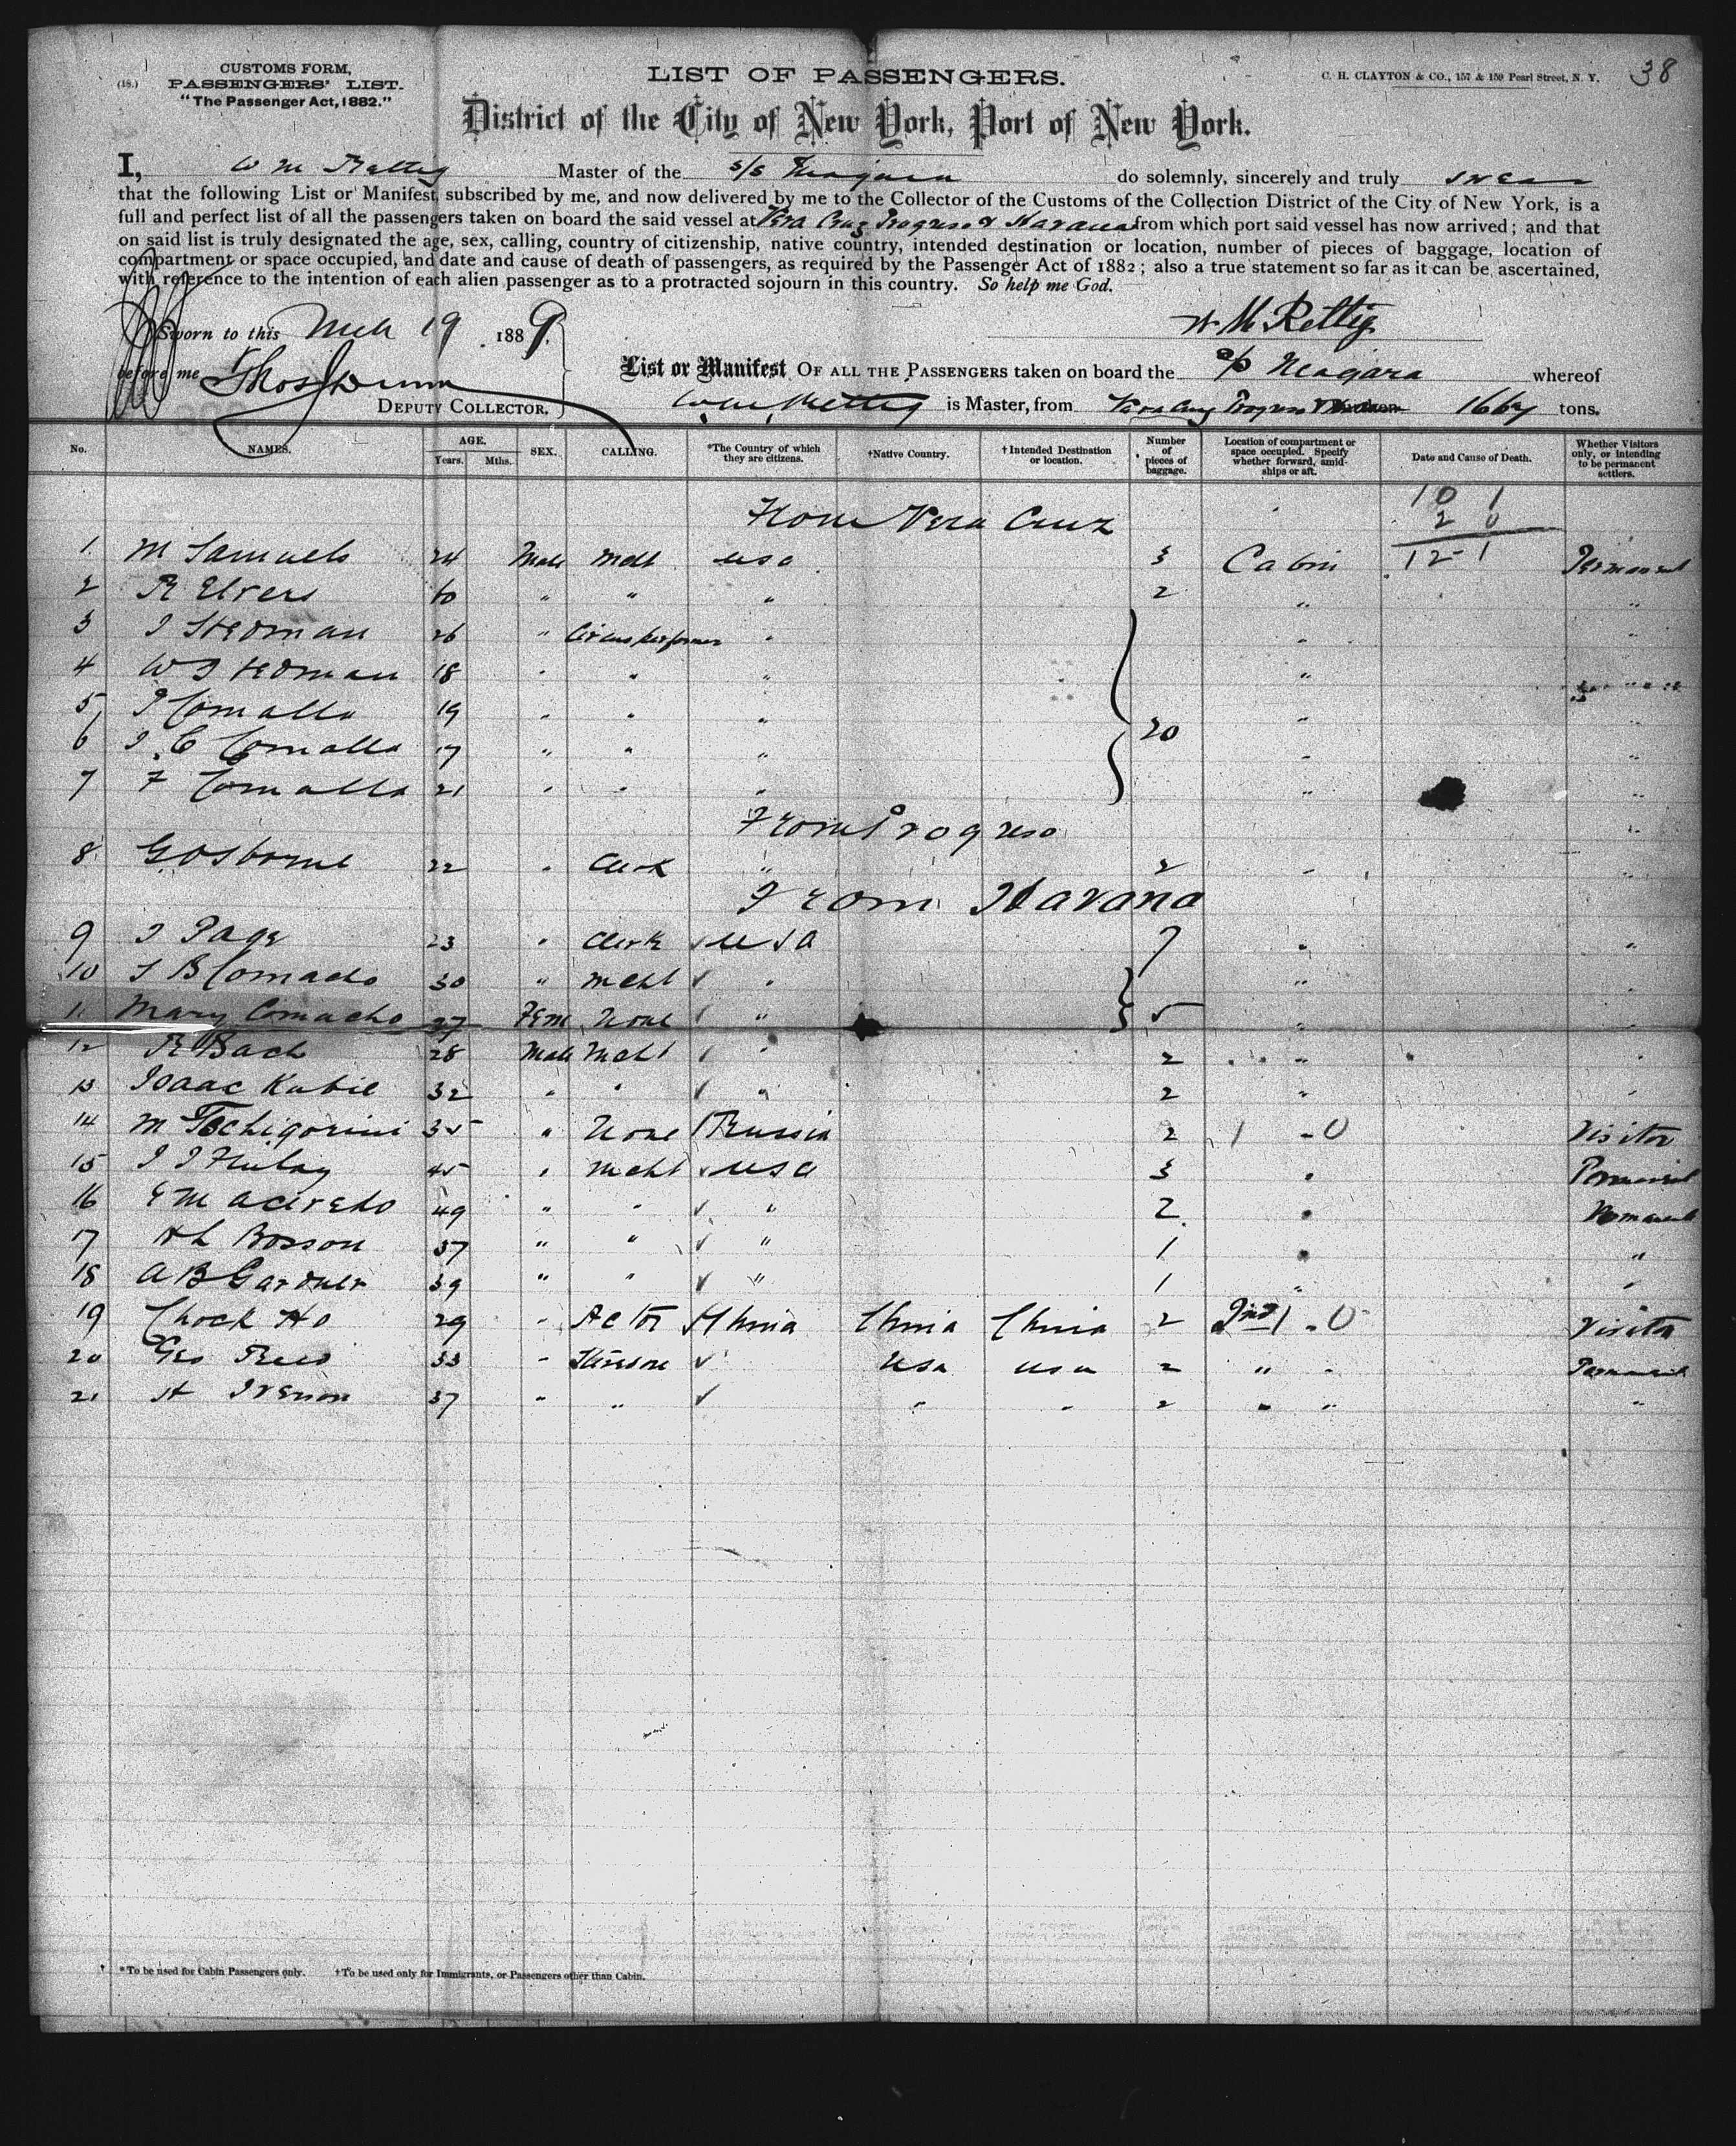 (18.)
CUSTOMS FORM,
PASSENGERS' LIST.
"The Passenger Act, 1882."
LIST OF PASSENGERS.
C. H. CLAYTON & CO., 157 & 159 Pearl Street, N. Y.
38
District of the City of New York, Port of New York.
I, W M Rettig Master of the s/s Niagara do solemnly, sincerely and truly swear
that the following List or Manifest, subscribed by me, and now delivered by me to the Collector of the Customs of the Collection District of the City of New York, is a
full and perfect list of all the passengers taken on board the said vessel at Vera Cruz Progreso & Havana from which port said vessel has now arrived; and that
on said list is truly designated the age, sex, calling, country of citizenship, native country, intended destination or location, number of pieces of baggage, location of
compartment or space occupied, and date and cause of death of passengers, as required by the Passenger Act of 1882; also a true statement so far as it can be ascertained,
with reference to the intention of each alien passenger as to a protracted sojourn in this country. So help me God.
W M Rettig
Sworn to this Mch 19 1889.
before me Thos Dunn
DEPUTY COLLECTOR.
List or Manifest OF ALL THE PASSENGERS taken on board the s/s Niagara whereof
W M Rettig is Master, from Vera Cruz Progreso & Havana 1667 tons.
No. NAMES. AGE. Years. Mths. SEX. CALLING. *The Country of which they are citizens. †Native Country. †Intended Destination or location. Number of pieces of baggage. Location of compartment or space occupied. Specify whether forward, amidships or aft. Date and Cause of Death. Whether Visitors only, or intending to be permanent settlers.
10 1
2 0
12 - 1
From Vera Cruz
1 M Samuels 24 Male Mcht USA 3 Cabin Permanent
2 R Elvers 60 " " " 2 " "
3 J Stedman 26 " Circus performer " " "
4 W Stedman 18 " " " "
5 J Comalla 19 " " " " "
6 J C Comalla 17 " " " 20 " "
7 F Comalla 21 " " " " "
From Progreso
8 G Osborne 22 " Clerk " 2 " "
From Havana
9 J Page 23 " Clerk USA 7 " "
10 J B Comacho 30 " Mcht " " "
11 Mary Comacho 27 Fem None " 5 " "
12 R Bach 28 Male Mcht " 2 " "
13 Isaac Kubie 32 " " " 2 " "
14 M Tschigorini 35 " None Russia 2 1 - 0 Visitor
15 45 " Mcht USA 3 " Permanent
16 E M Acevedo 49 " " " 2 " Permanent
17 H L Bosson 37 " " " 1 " "
18 A B Gardner 39 " " " 1 " "
19 Chock Ho 29 " Actor China China China 2 2nd 1 - 0 Visitor
20 Geo Reed 33 " USA USA 2 " " Permanent
21 H Iverson 37 " " " " 2 " " "
*To be used for Cabin Passengers only. †To be used only for Immigrants, or Passengers other than Cabin.